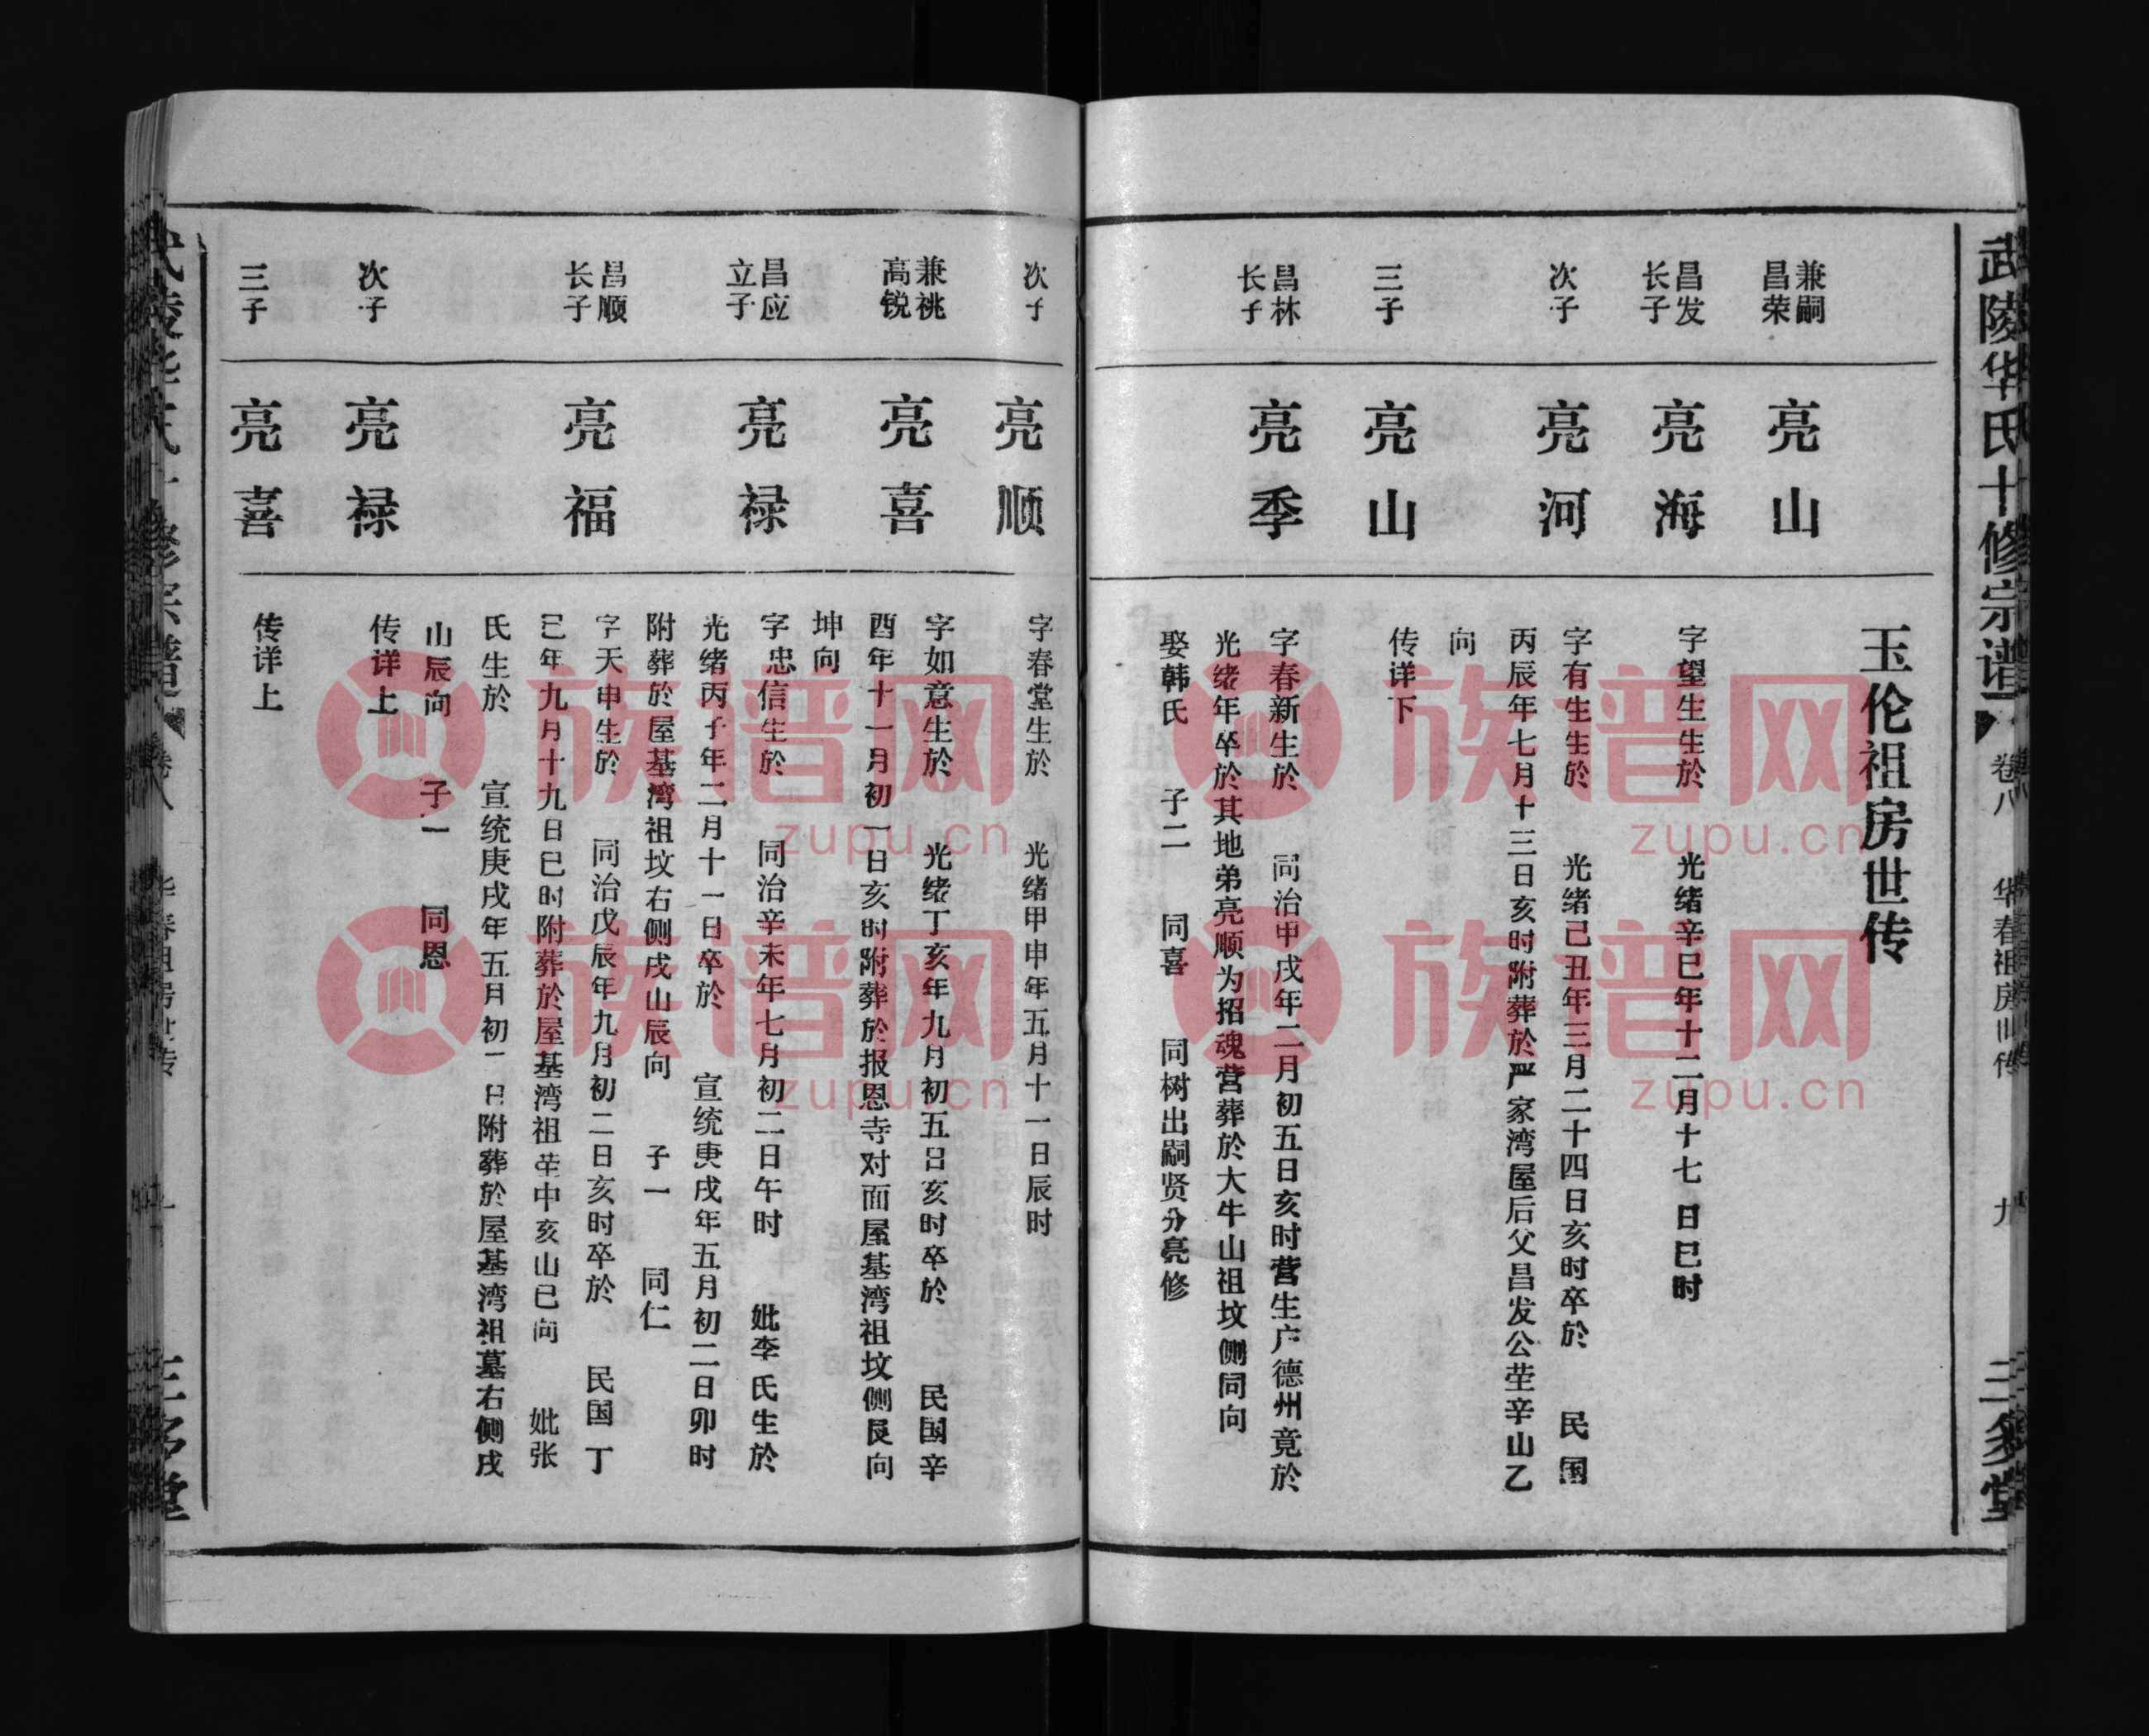 武陵华氏十修宗谱
卷八
华春祖房世传
九
三多堂
玉伦祖房世传
兼嗣
昌荣
亮山
昌发
长子
亮海
字望生生於 光绪辛巳年十二月十七日巳时
次子
亮河
字有生生於 光绪己丑年三月二十四日亥时卒於 民国
丙辰年七月十三日亥时附葬於严家湾屋后父昌发公茔辛山乙
向
三子
亮山
传详下
昌林
长子
亮季
字春新生於 同治甲戌年二月初五日亥时营生户德州竟於
光绪年卒於其地弟亮顺为招魂营葬於大牛山祖坟侧同向
娶韩氏 子二 同喜 同树出嗣贤分亮修
次子
亮顺
字春堂生於 光绪甲申年五月十一日辰时
兼祧
高锐
亮喜
字如意生於 光绪丁亥年九月初五日亥时卒於 民国辛
酉年十一月初一日亥时附葬於报恩寺对面屋基湾祖坟侧艮向
坤向
昌应
立子
亮禄
字忠信生於 同治辛未年七月初二日午时 妣李氏生於
光绪丙子年二月十一日卒於 宣统庚戌年五月初二日卯时
附葬於屋基湾祖坟右侧戌山辰向 子一 同仁
昌顺
长子
亮福
字天申生於 同治戊辰年九月初二日亥时卒於 民国丁
巳年九月十九日巳时附葬於屋基湾祖茔中亥山巳向 妣张
氏生於 宣统庚戌年五月初一日附葬於屋基湾祖墓右侧戌
山辰向 子一 同恩
次子
亮禄
传详上
三子
亮喜
传详上
武陵华氏十修宗谱
卷八
华春祖房世传
三多堂
族谱网
zupu.cn
族谱网
zupu.cn
族谱网
zupu.cn
族谱网
zupu.cn